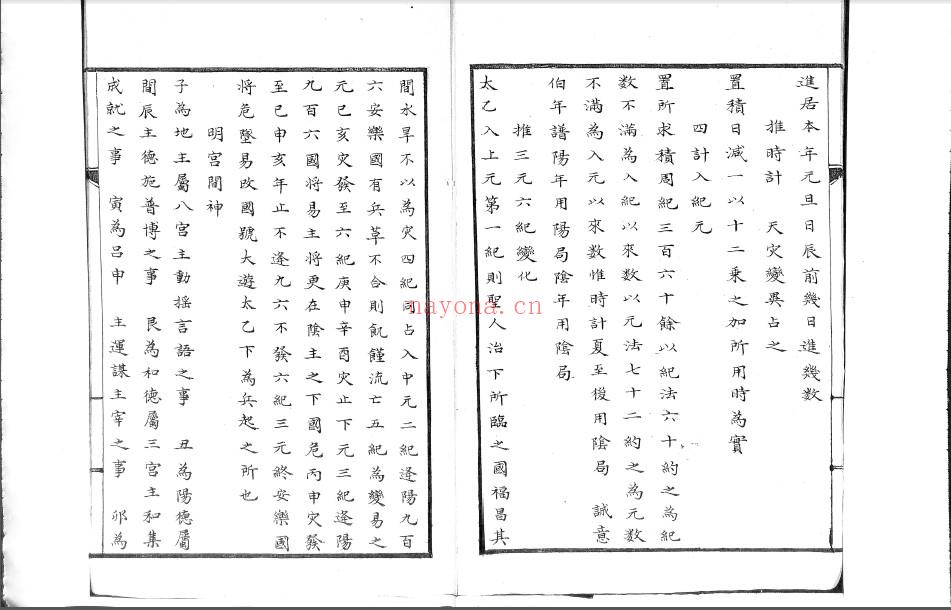 進居本年元旦日辰前幾日進幾数
推時計　天灾變異占之
置積日減一以十二乗之加所用時為實
四計入紀元
置所求積周紀三百六十餘以紀法六十約之為紀
数不滿為入紀以來数以元法七十二約之為元数
不滿為入元以來数惟時計夏至後用陰局　誠意
伯年譜陽年用陽局陰年用陰局
推三元六紀變化
太乙入上元第一紀則聖人治下所臨之國福昌其
間水旱不以為灾四紀同占入中元二紀逢陽九百
六安樂國有兵革不合則飢饉流亡五紀為變易之
元已亥灾發至六紀庚申辛酉灾止下元三紀逢陽
九百六國将易主将更在陰主之下國危丙申灾發
至已申亥年止不逢九六不發六紀三元終安樂國
将危墜易改國號大遊太乙下為兵起之所也
明宫間神
子為地主屬八宫主動揺言語之事　丑為陽德屬
間辰主德施普博之事　艮為和德屬三宫主和集
成就之事　寅為吕申　主運謀主宰之事　卯為
nayona.cn